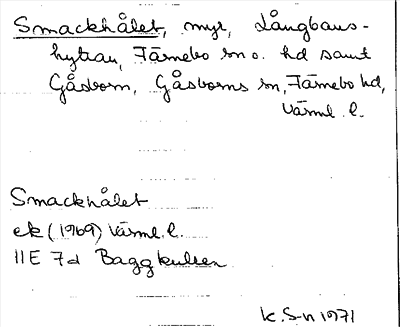 Smackhålet, myr, Långbans-
hyttan, Färnebo sn o. hd samt
Gåsborn, Gåsborns sn, Färnebo hd,
Värml. l.
Smackhålet
ek (1969) Värml. l.
11E 7d Baggkullen
K. S-n 1971